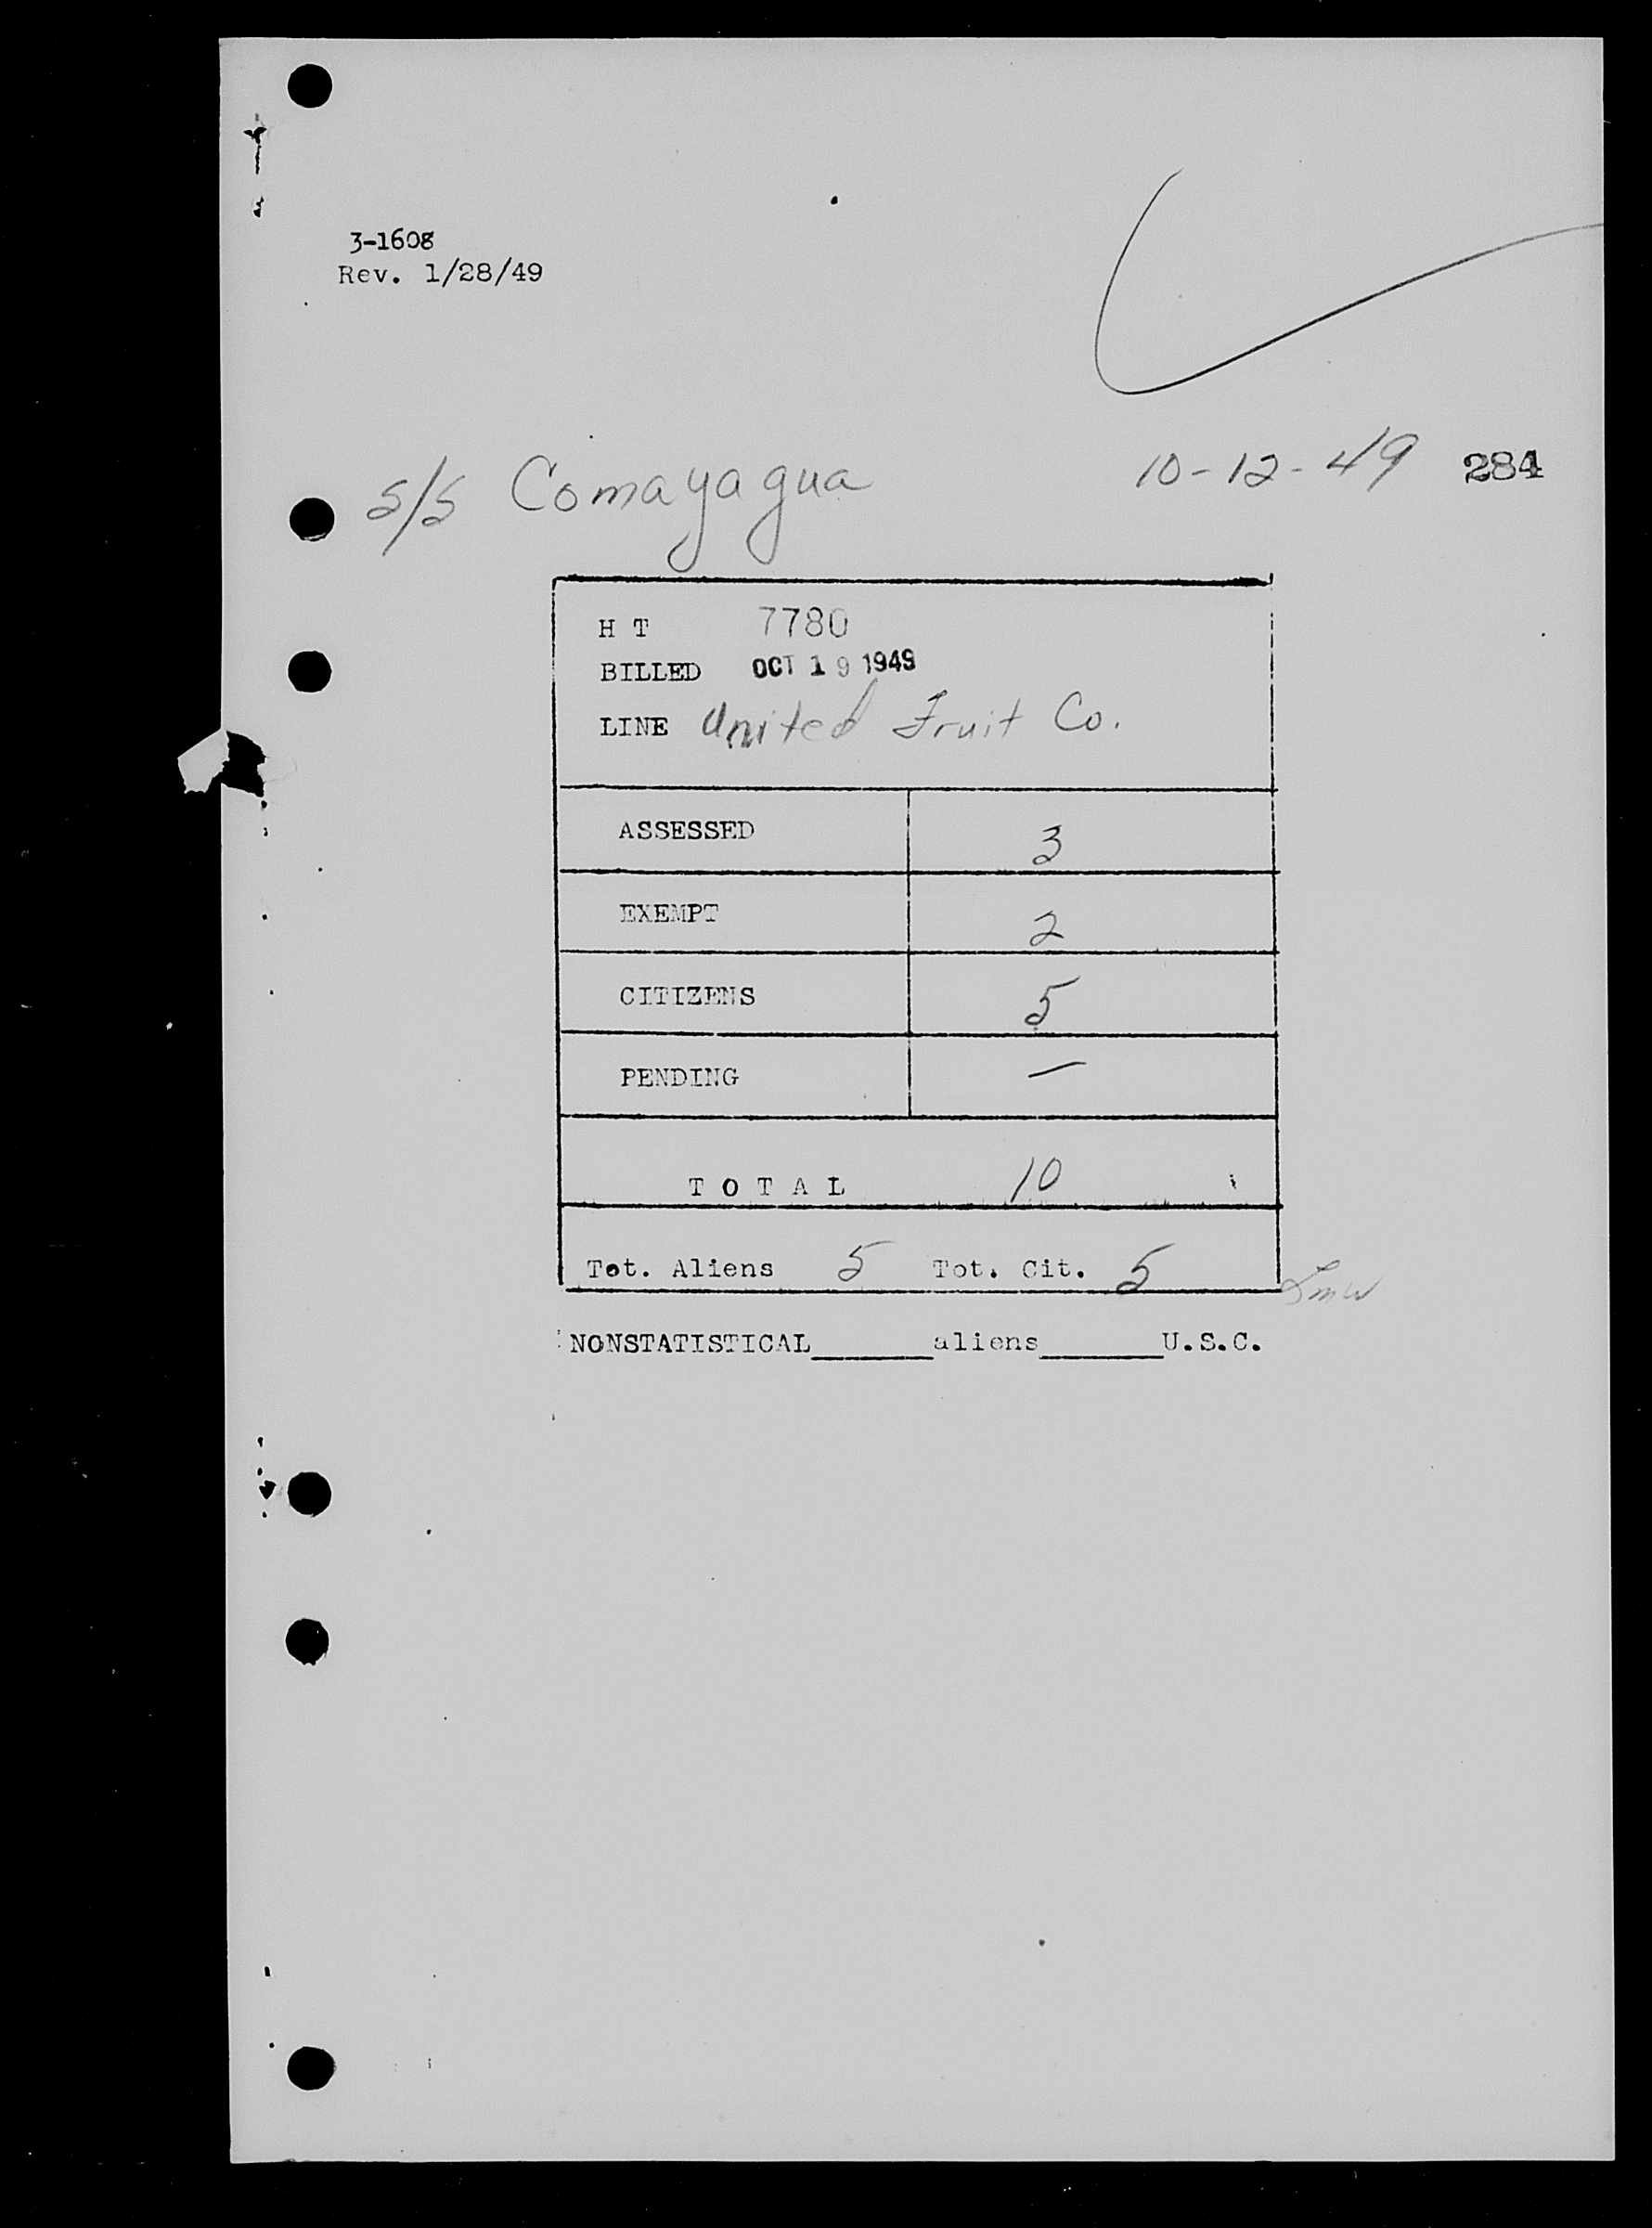 3-1608
Rev. 1/28/49
S/S Comayagua 10-12-49 284
H T 7780
BILLED OCT 19 1949
LINE United Fruit Co.
ASSESSED 3
EXEMPT 2
CITIZENS 5
PENDING —
TOTAL 10
Tot. Aliens 5 Tot. Cit. 5
NONSTATISTICAL______aliens______U.S.C.